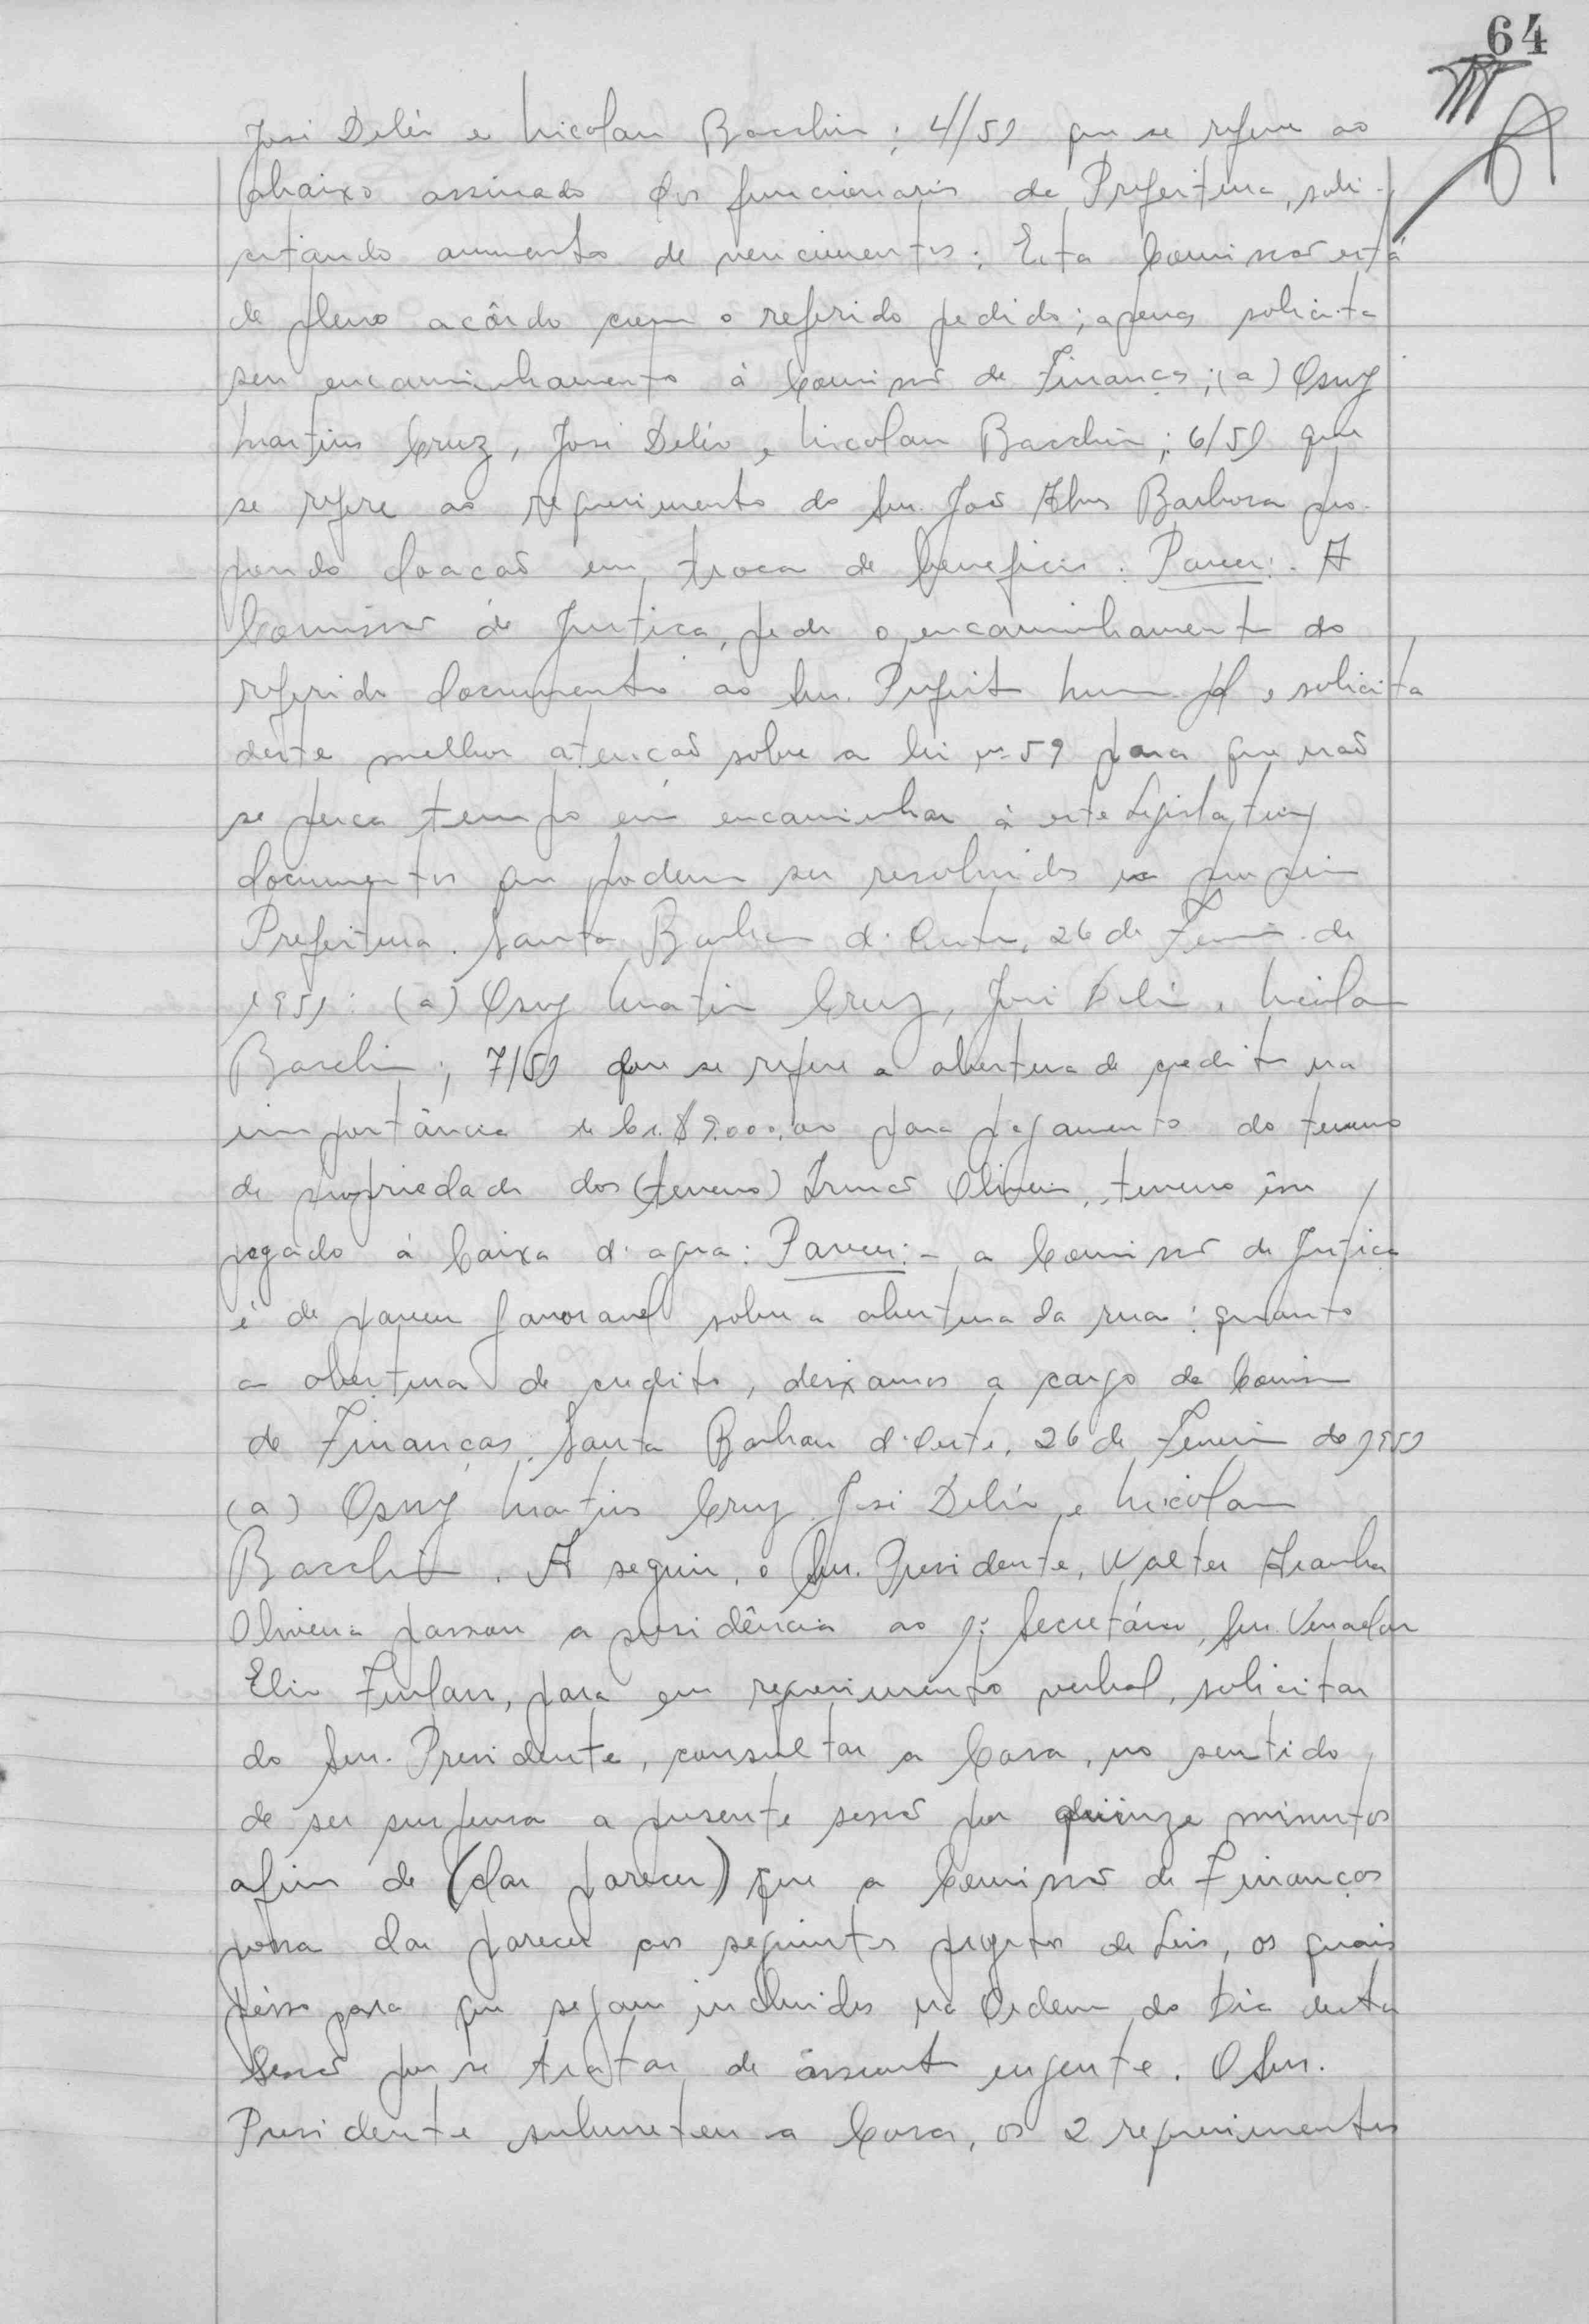 64
José Delén e Nicolau Bacchin; 4/59 que se refere ao
abaixo assinado dos funcionarios da Prefeitura, soli-
citando aumento de vencimentos: Esta Comissão está
de pleno acôrdo com o referido pedido; apenas solicita
seu encaminhamento à Comissão de Finanças; (a) Osny
Martins Cruz, José Delén e Nicolau Bacchin; 6/59 que
se refere ao requerimento do Snr. João Alves Barbosa pro-
pondo doacaõ em troca de beneficio: Parecer: - A
Comissão de Justica, pede o encaminhamento do
referido documento ao Snr. Prefeito Municipal e solicita
deste melhor atencaõ sobre a lei nº 59 para que naõ
se perca tempo em encaminhar à este Legislativo
documentos que podem ser resolvidos na propria
Prefeitura. Santa Barbara d'Oeste, 26 de Fever. de
1959: (a) Osny Martins Cruz, José Delén e Nicolau
Bacchin; 7/59 que se refere a abertura de credito na
importância de Cr.$ 9.000,00 para pagamento do terreno
de propriedade dos (terreno) Irmaõ Oliveira, terreno êsse
pegado à Caixa d'agua: Parecer: - a Comissão de Justica
é de parecer favoravel sobre a abertura da rua: quanto
a abertura de credito, deixamos a cargo da Comissão
de Finanças. Santa Barbara d'Oeste, 26 de Fevereiro de 1959
(a) Osny Martins Cruz José Delén e Nicolau
Bacchin. A seguir, o Snr. Presidente, Walter Aranha
Oliveira passou a presidência ao 1º Secretário, Snr. Vereador
Elio Furlan, para em requerimento verbal, solicitar
do Snr. Presidente, consultar a Casa, no sentido
de ser suspensa a presente sessão por quinze minutos
afim de (dar parecer) que a Comissão de Finanças
possa dar parecer aos seguintes projetos de Leis, os quais
pésso para que sejam incluidos na Ordem do Dia desta
Sessão por se tratar de assunto urgente. O Snr.
Presidente submeteu a Casa, os 2 requerimentos